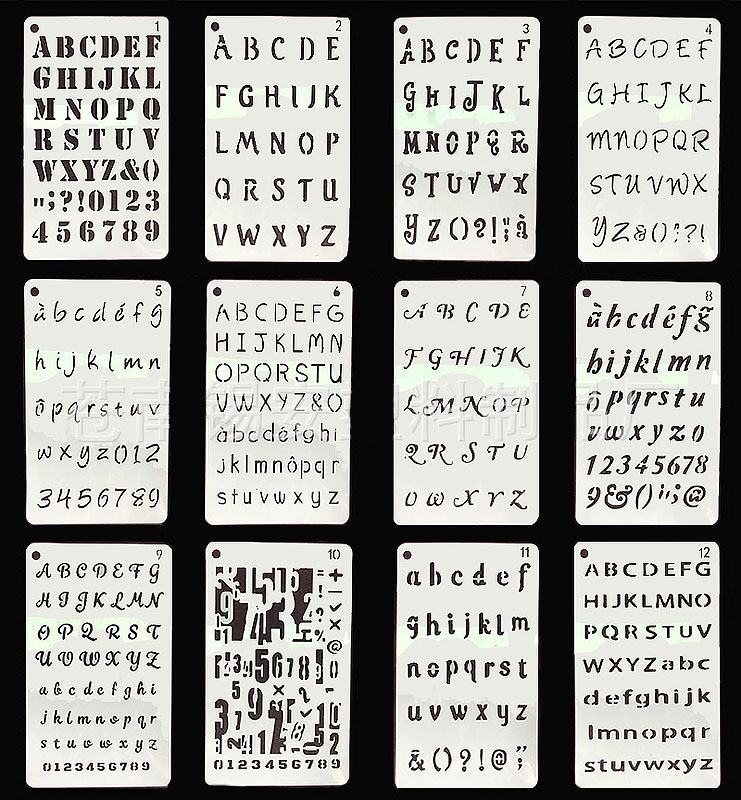 1
ABCDEF
GHIJKL
MNOPQ
RSTUV
WXYZ&()
";?!0123
456789
2
ABCDE
FGHIJK
LMNOP
QRSTU
VWXYZ
3
ABCDEF
GHIJKL
MNOPQR
STUVWX
YZ()?!;"à
4
ABCDEF
GHIJKL
MNOPQR
STUVWX
YZ&();?!
5
àbcdéfg
hijklmn
ôpqrstuv
wxyz012
3456789
6
ABCDEFG
HIJKLMN
OPQRSTU
VWXYZ&O
àbcdéfghi
jklmnôpqr
stuvwxyz
7
ABCDE
FGHIJK
LMNOP
QRSTU
VWXYZ
8
àbcdéfg
hijklmn
ôpqrstu
vwxyz0
12345678
9&()";@
9
ABCDEFG
HIJKLMN
OPQRST
UVWXYZ
abcdefghi
jklmnopqr
stuvwxyz
0123456789
10
12345678
0123456789
11
abcdef
ghijklm
nopqrst
uvwxyz
&()?!@;"
12
ABCDEFG
HIJKLMNO
PQRSTUV
WXYZabc
defghijk
lmnopqr
stuvwxyz